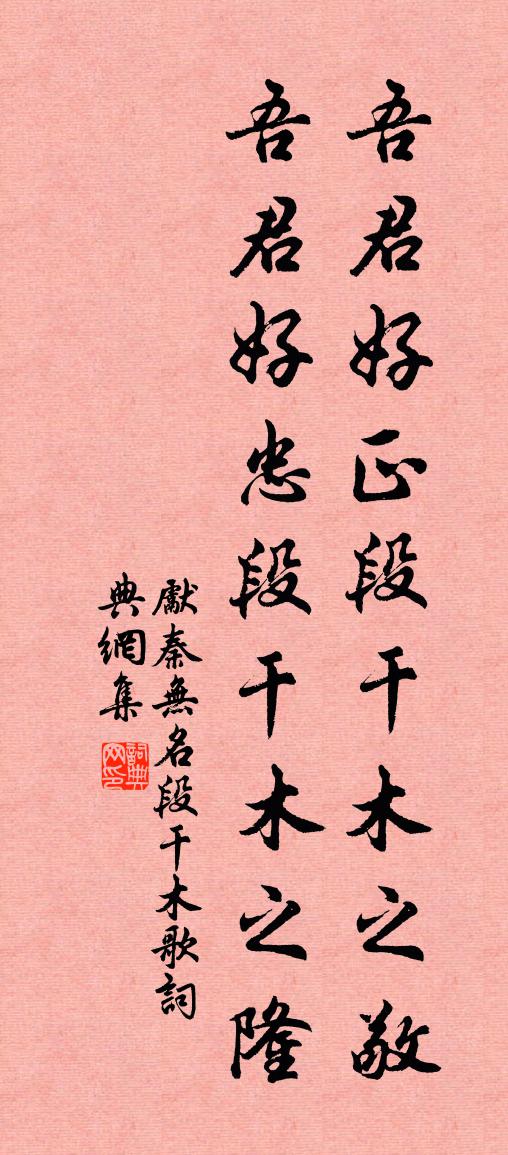 吾君好正段干木之敬
吾君好忠段干木之隆
獻秦無名段干木歌詞
典網集
詞典网印